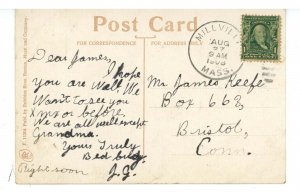 Post Card
FOR CORRESPONDENCE
FOR ADDRESS
MILLVILLE
AUG
27
9 AM
MASS.
Dear James,
I hope
you are well. We
Want to see you
Xmas or before.
We are all well except
Grandma.
Yours Truly
J.J.
Right soon
Mr. James Keefe
Box 662
Bristol,
Conn.